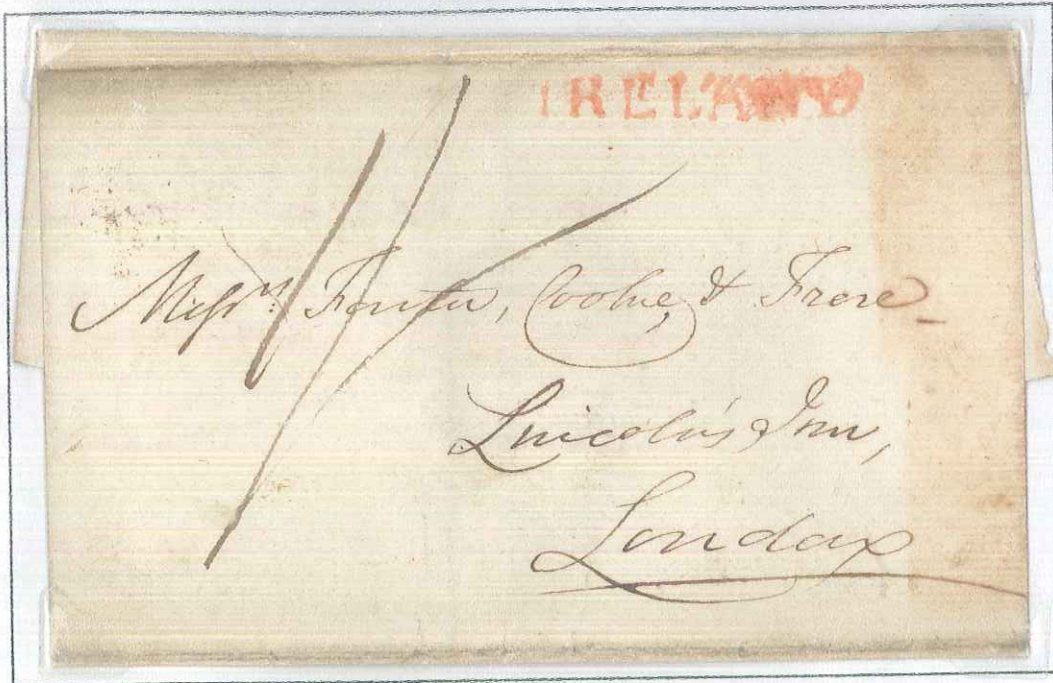 IRELAND
1/-
Messrs. Forster, Cooke, & Frere
Lincoln's Inn,
London